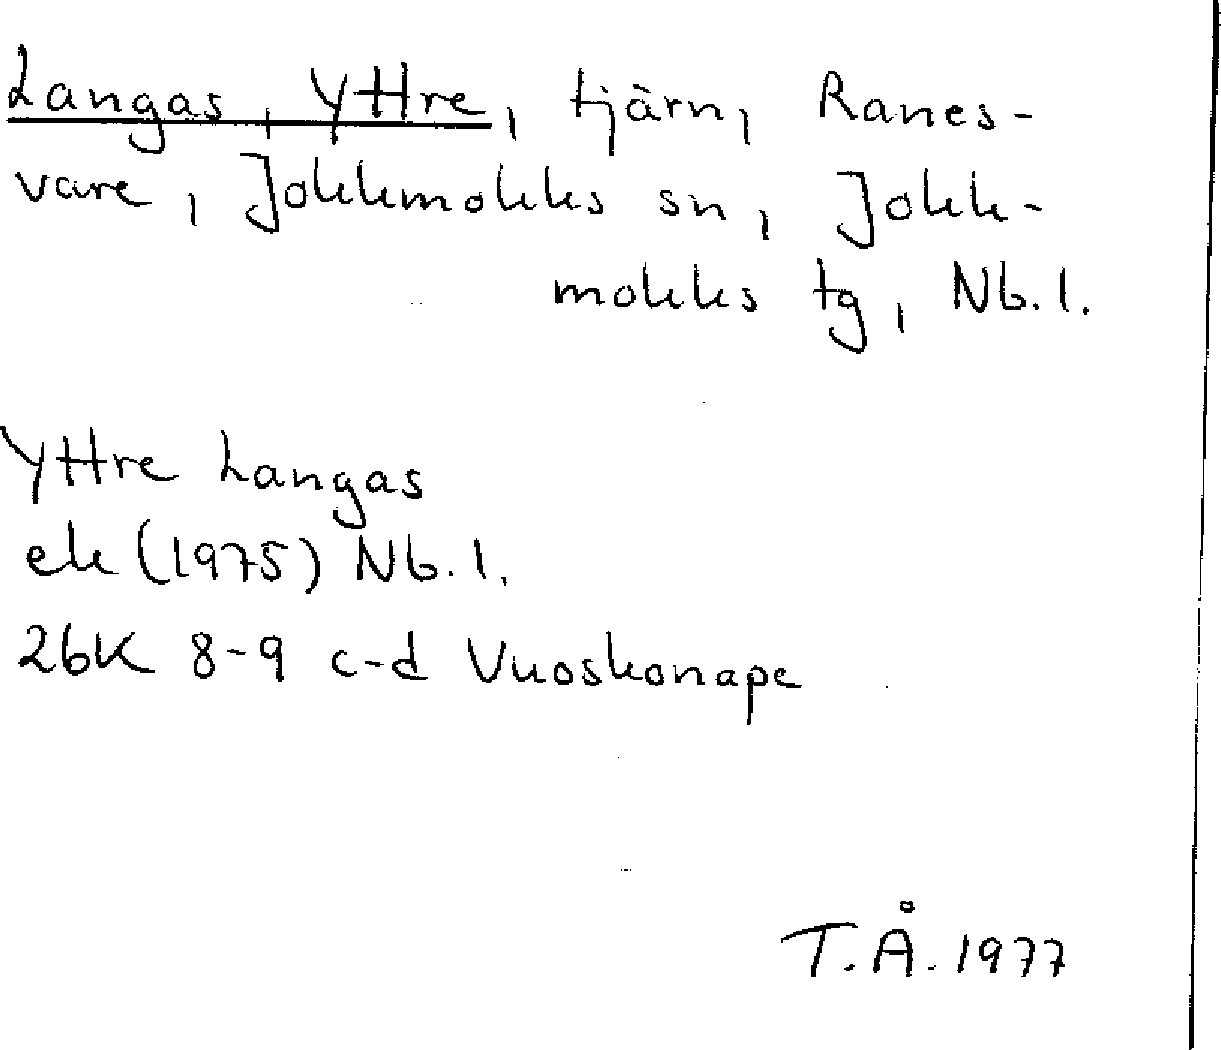 Langas, Yttre, tjärn, Ranes-
vare, Jokkmokks sn, Jokk-
mokks tg, Nb. l.
Yttre Langas
ek (1975) Nb. l.
26K 8-9 c-d Vuoskonape
T.Å. 1977